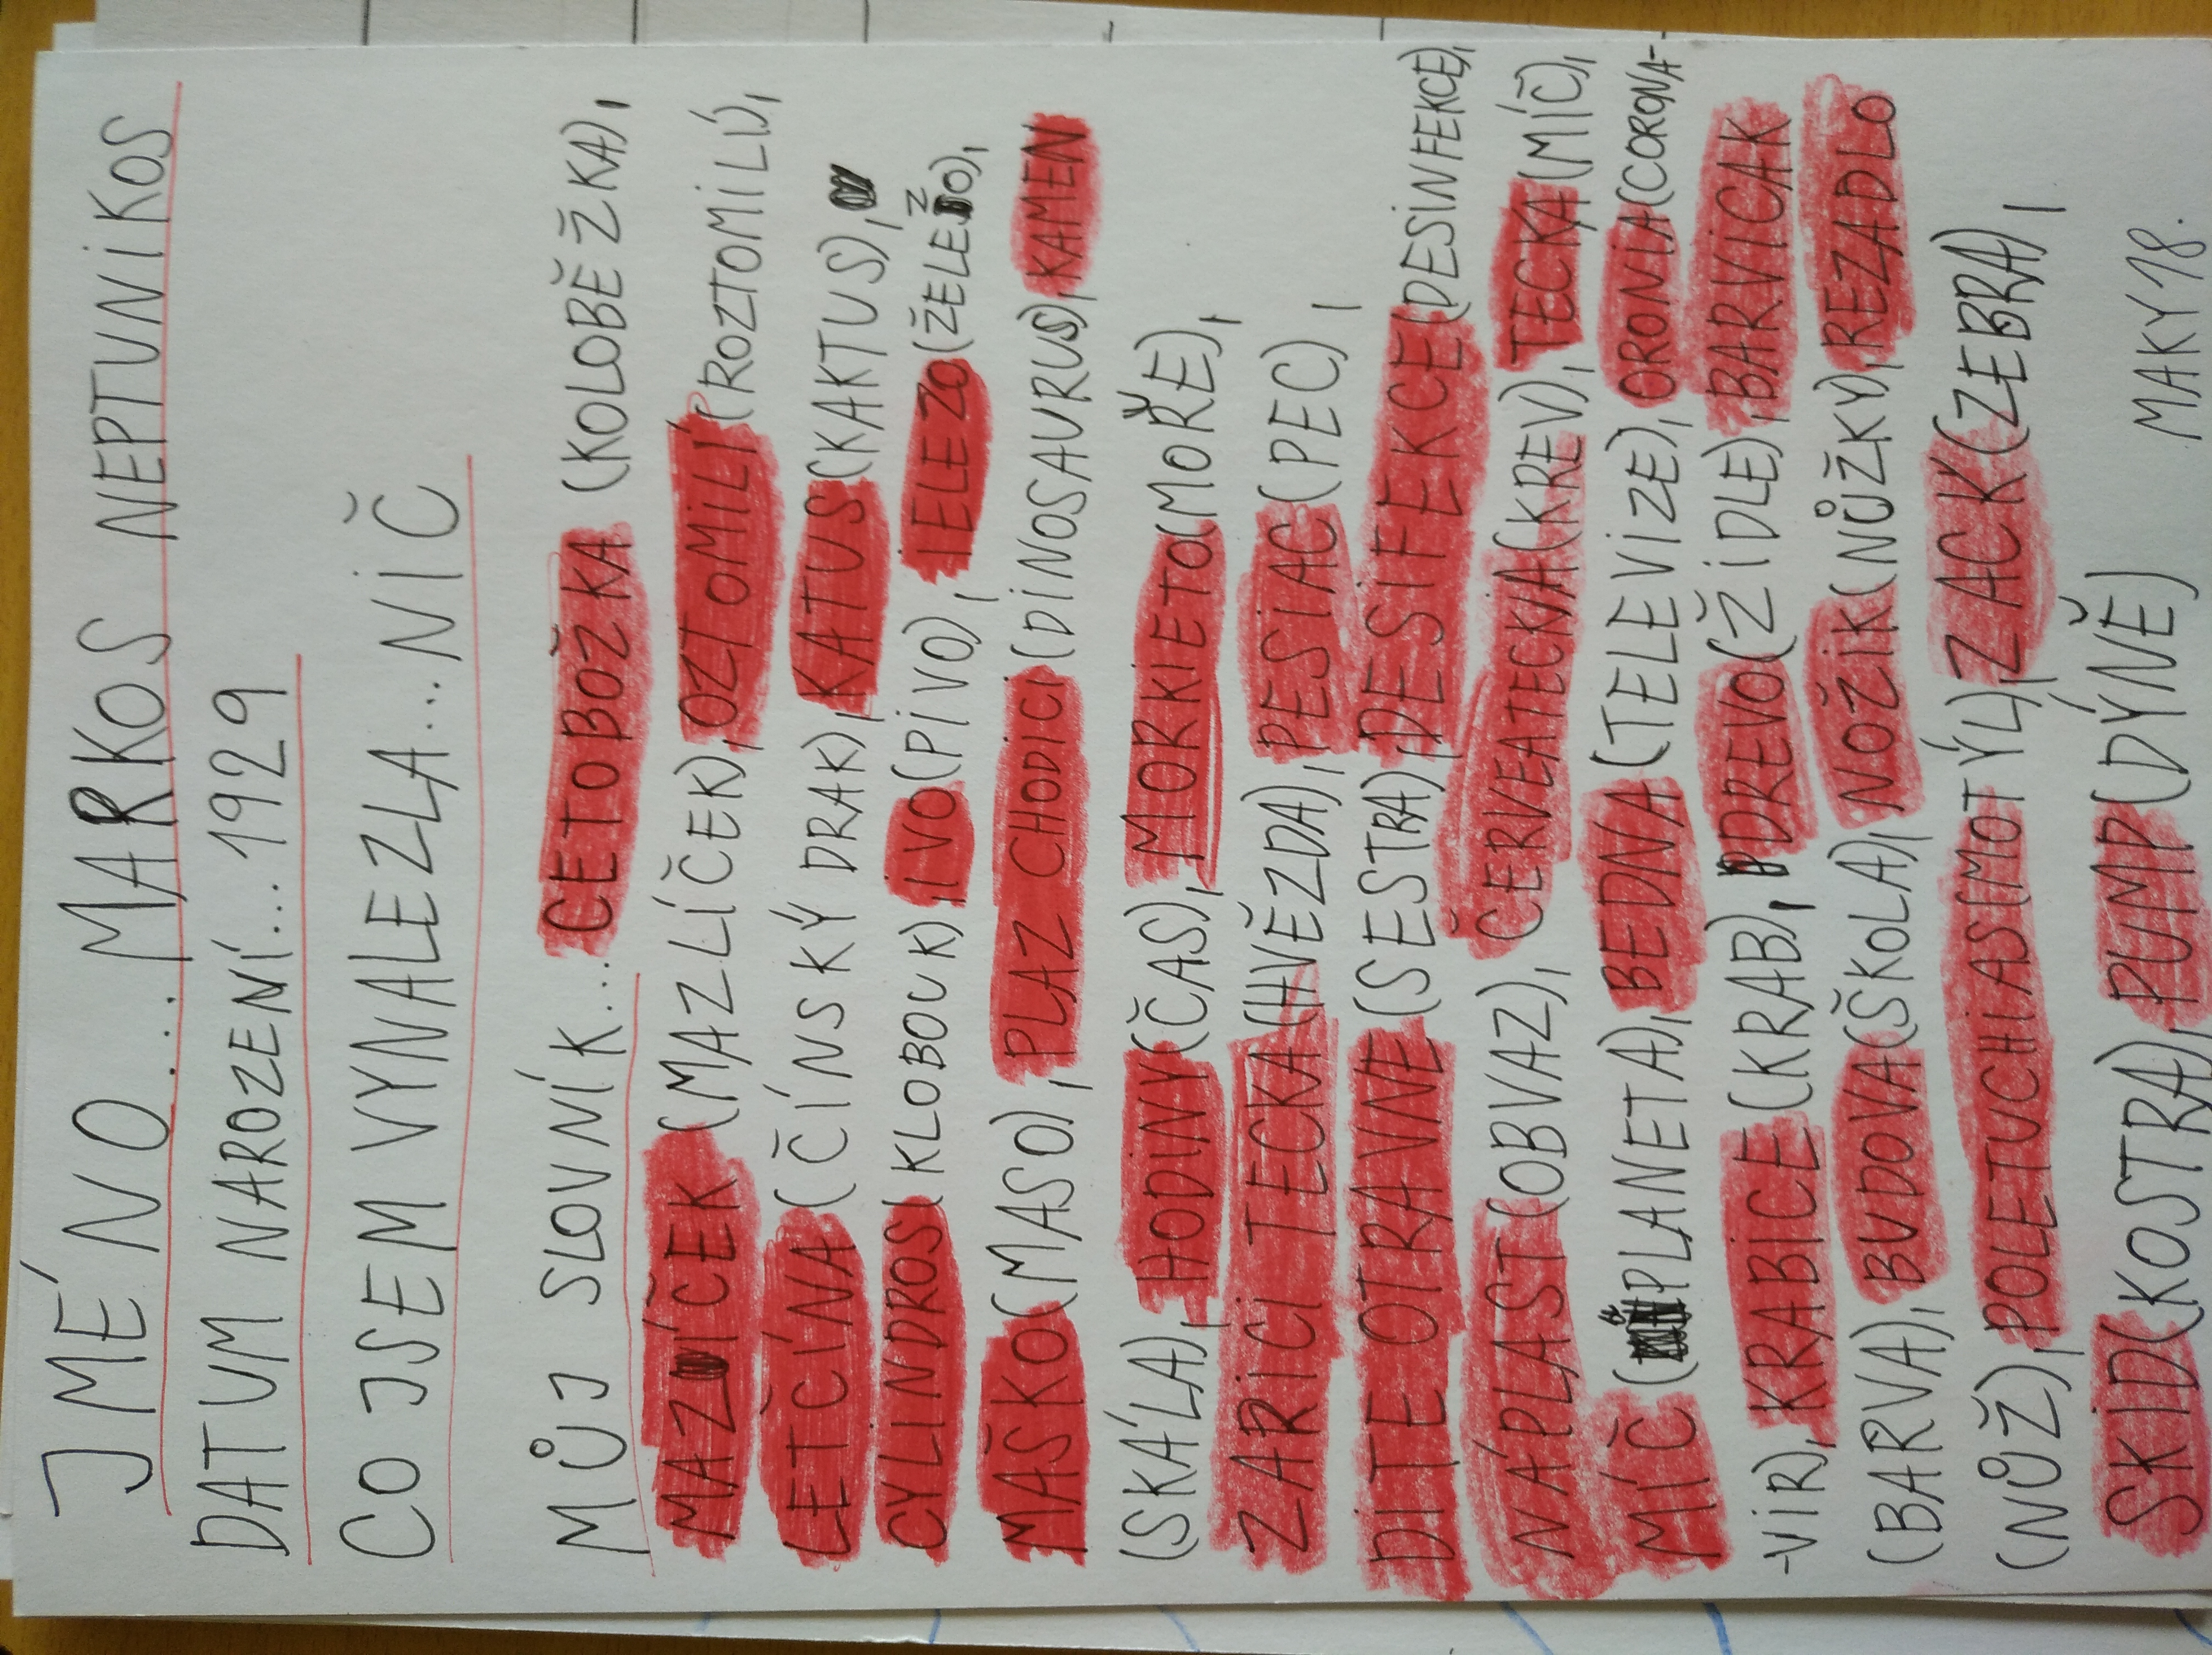 JMÉNO... MARKOS NEPTUNIKOS
DATUM NAROZENÍ... 1929
CO JSEM VYNALEZLA... NIČ
MŮJ SLOVNÍK... CETOBOŽKA (KOLOBĚŽKA),
MAZÍČEK (MAZLÍČEK), OZTOMILÍ (ROZTOMILÝ),
LETČÍNA (ČÍNSKÝ DRAK), KATUS (KAKTUS),
CYLINDROS (KLOBOUK), IVO (PIVO), IELEZO (ŽELEZO),
MAŠKO (MASO), PLAZ CHODICI (DINOSAURUS), KAMEN
(SKÁLA), HODINY (ČAS), MORKIETO (MOŘE),
ZARICI TECKA (HVĚZDA), PESIAC (PEC),
DITE OTRAVNE (SESTRA), DESIFEKCE (DESINFEKCE),
NÁPLAST (OBVAZ), ČERVEATECKNA (KREV), TECKA (MÍČ),
MÍČ (PLANETA), BEDNA (TELEVIZE), ORONIA (CORONA-
-VIR), KRABICE (KRAB), DREVO (ŽIDLE), BARVICAK
(BARVA), BUDOVA (ŠKOLA), NOŽIK (NŮŽKY), REZADLO
(NŮŽ), POLETUCHIAS (MOTÝL), ZACK (ZEBRA),
SKID (KOSTRA), PUMP (DÝNĚ) MAKY 18.